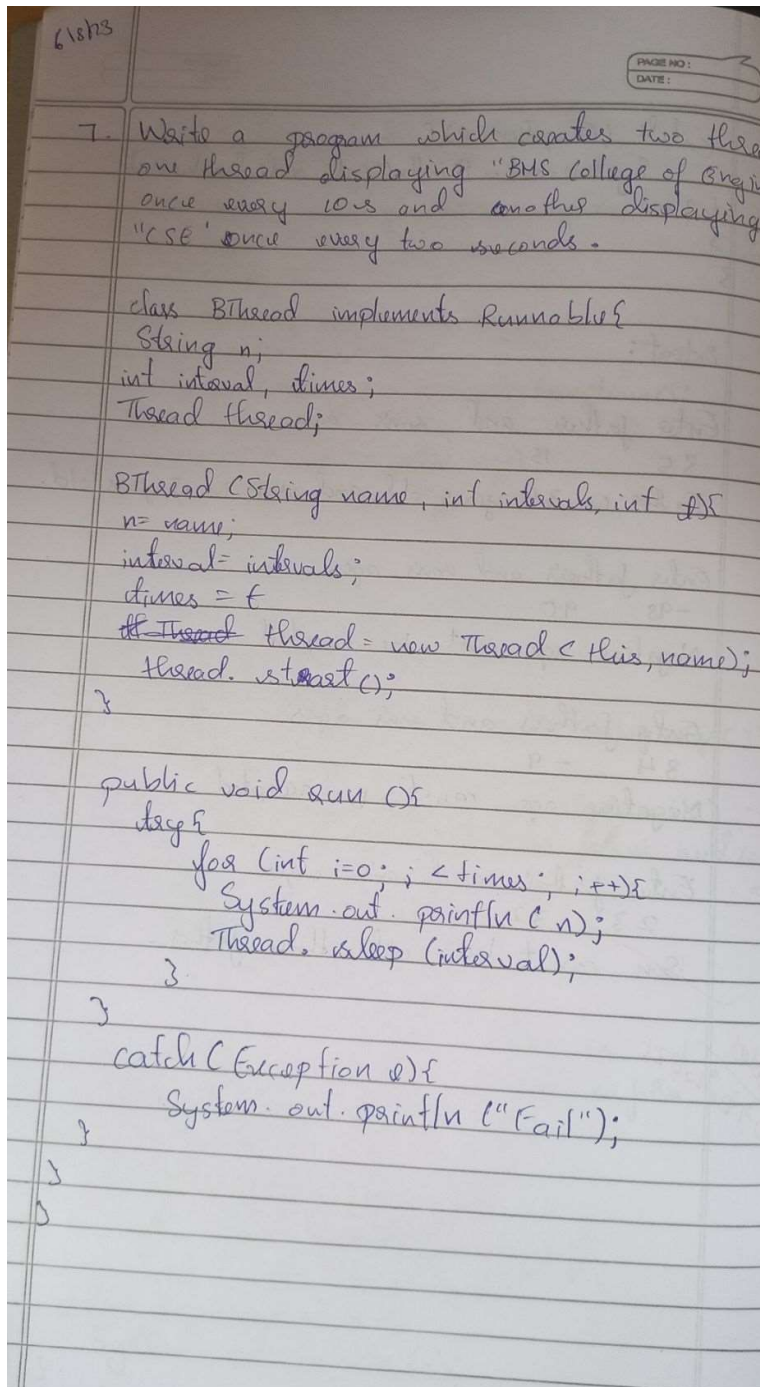 6/8/23
PAGE NO:
DATE:
7. Write a program which creates two thre
one thread displaying "BMS College of Engi
once every 10s and another displaying
"CSE" once every two seconds.
class BThread implements Runnable{
String n;
int interval, times;
Thread thread;
BThread (String name, int intervals, int t){
n= name;
interval= intervals;
times = t
thread = new Thread (this, name);
thread. start();
}
public void run (){
try{
for (int i=0; i <times; i++){
System.out. println (n);
Thread. sleep (interval);
}
}
catch (Exception e){
System. out. println ("Fail");
}
}
}